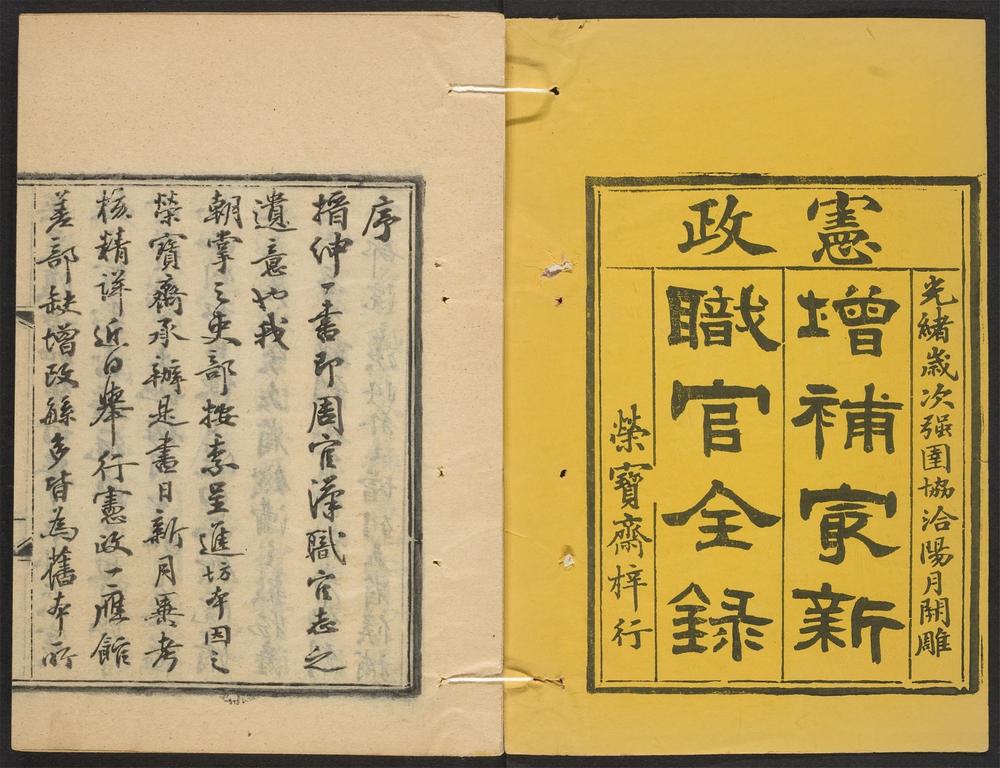 憲政
光緒歲次强圉協洽陽月開雕
增補㝡新
職官全錄
榮寶齋梓行
序
搢紳一書即周官漢職官志之
遺意也我
朝掌之吏部按季呈進坊本因之
榮寶齋承辦是書日新月異考
核精詳近日舉行憲政一應館
差部缺增改緐多皆為舊本所